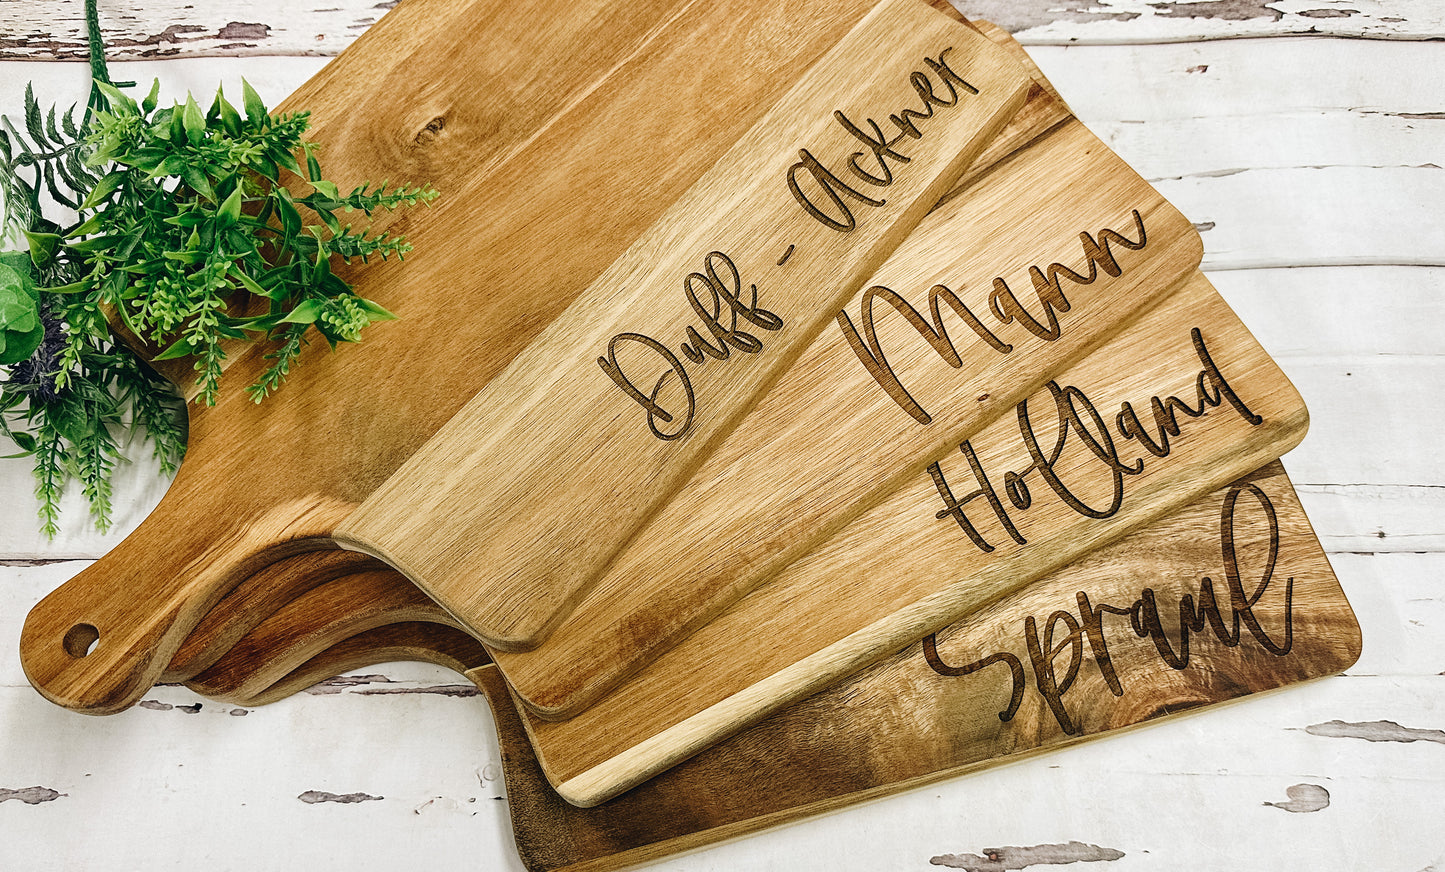 Duff - Ackner
Mann
Holland
Spraul